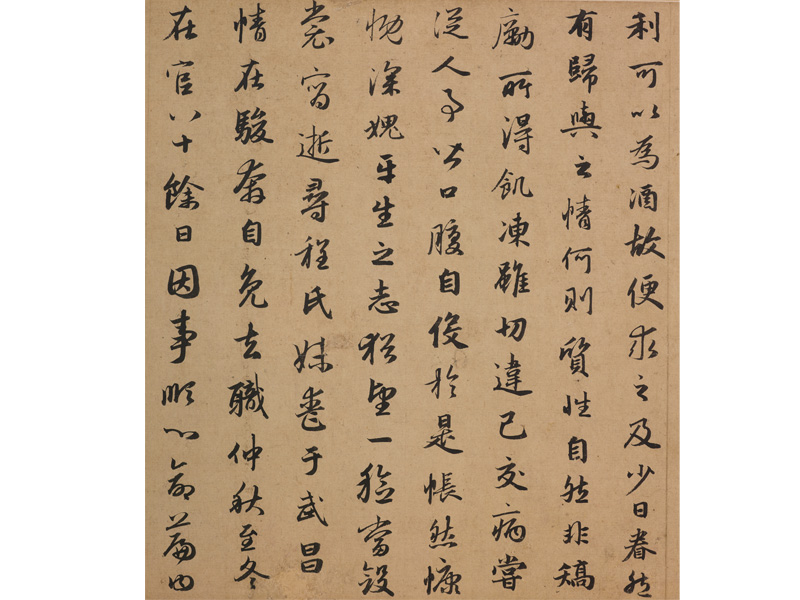 利可以為酒故便求之及少日眷然
有歸與之情何則質性自然非矯
勵所得飢凍雖切違己交病嘗
從人事皆口腹自役於是悵然慷
慨深愧平生之志猶望一稔當斂
裳宵逝尋程氏妹喪于武昌
情在駿奔自免去職仲秋至冬
在官八十餘日因事順心命篇曰